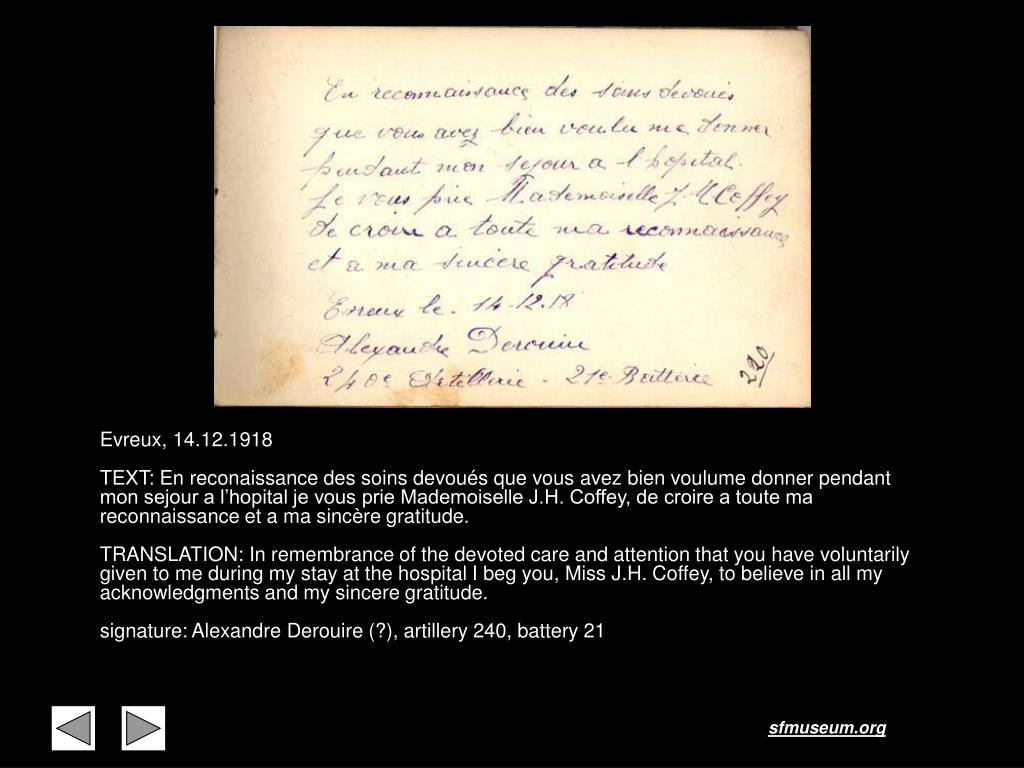 En reconnaissance des soins devoués
que vous avez bien voulu me donner
pendant mon sejour a l hopital.
Je vous prie Mademoiselle J. H Coffey
de croire a toute ma reconnaissance
et a ma sincère gratitude
Evreux le. 14-12.18
Alexandre
240e Artillerie - 21e Batterie
220
Evreux, 14.12.1918
TEXT: En reconaissance des soins devoués que vous avez bien voulume donner pendant
mon sejour a l’hopital je vous prie Mademoiselle J.H. Coffey, de croire a toute ma
reconnaissance et a ma sincère gratitude.
TRANSLATION: In remembrance of the devoted care and attention that you have voluntarily
given to me during my stay at the hospital I beg you, Miss J.H. Coffey, to believe in all my
acknowledgments and my sincere gratitude.
signature: Alexandre Derouire (?), artillery 240, battery 21
sfmuseum.org